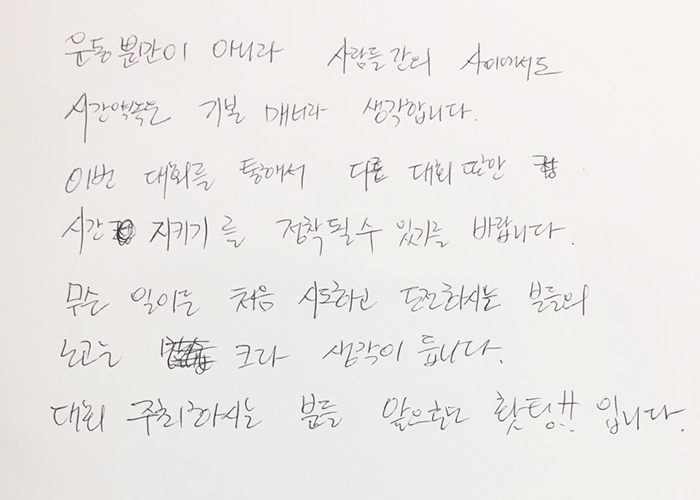 운동분만이 아니라 사람들간의 사이에서도
시간약속은 기본 매너라 생각합니다.
이번 대회를 통해서 다른 대회 또한
시간 지키기를 정착될수 있기를 바랍니다.
무슨 일이든 처음 시도하고 도전하시는 분들의
노고는 크다 생각이 듭니다.
대회 주최하시는 분들 앞으로도 홧팅!! 입니다.